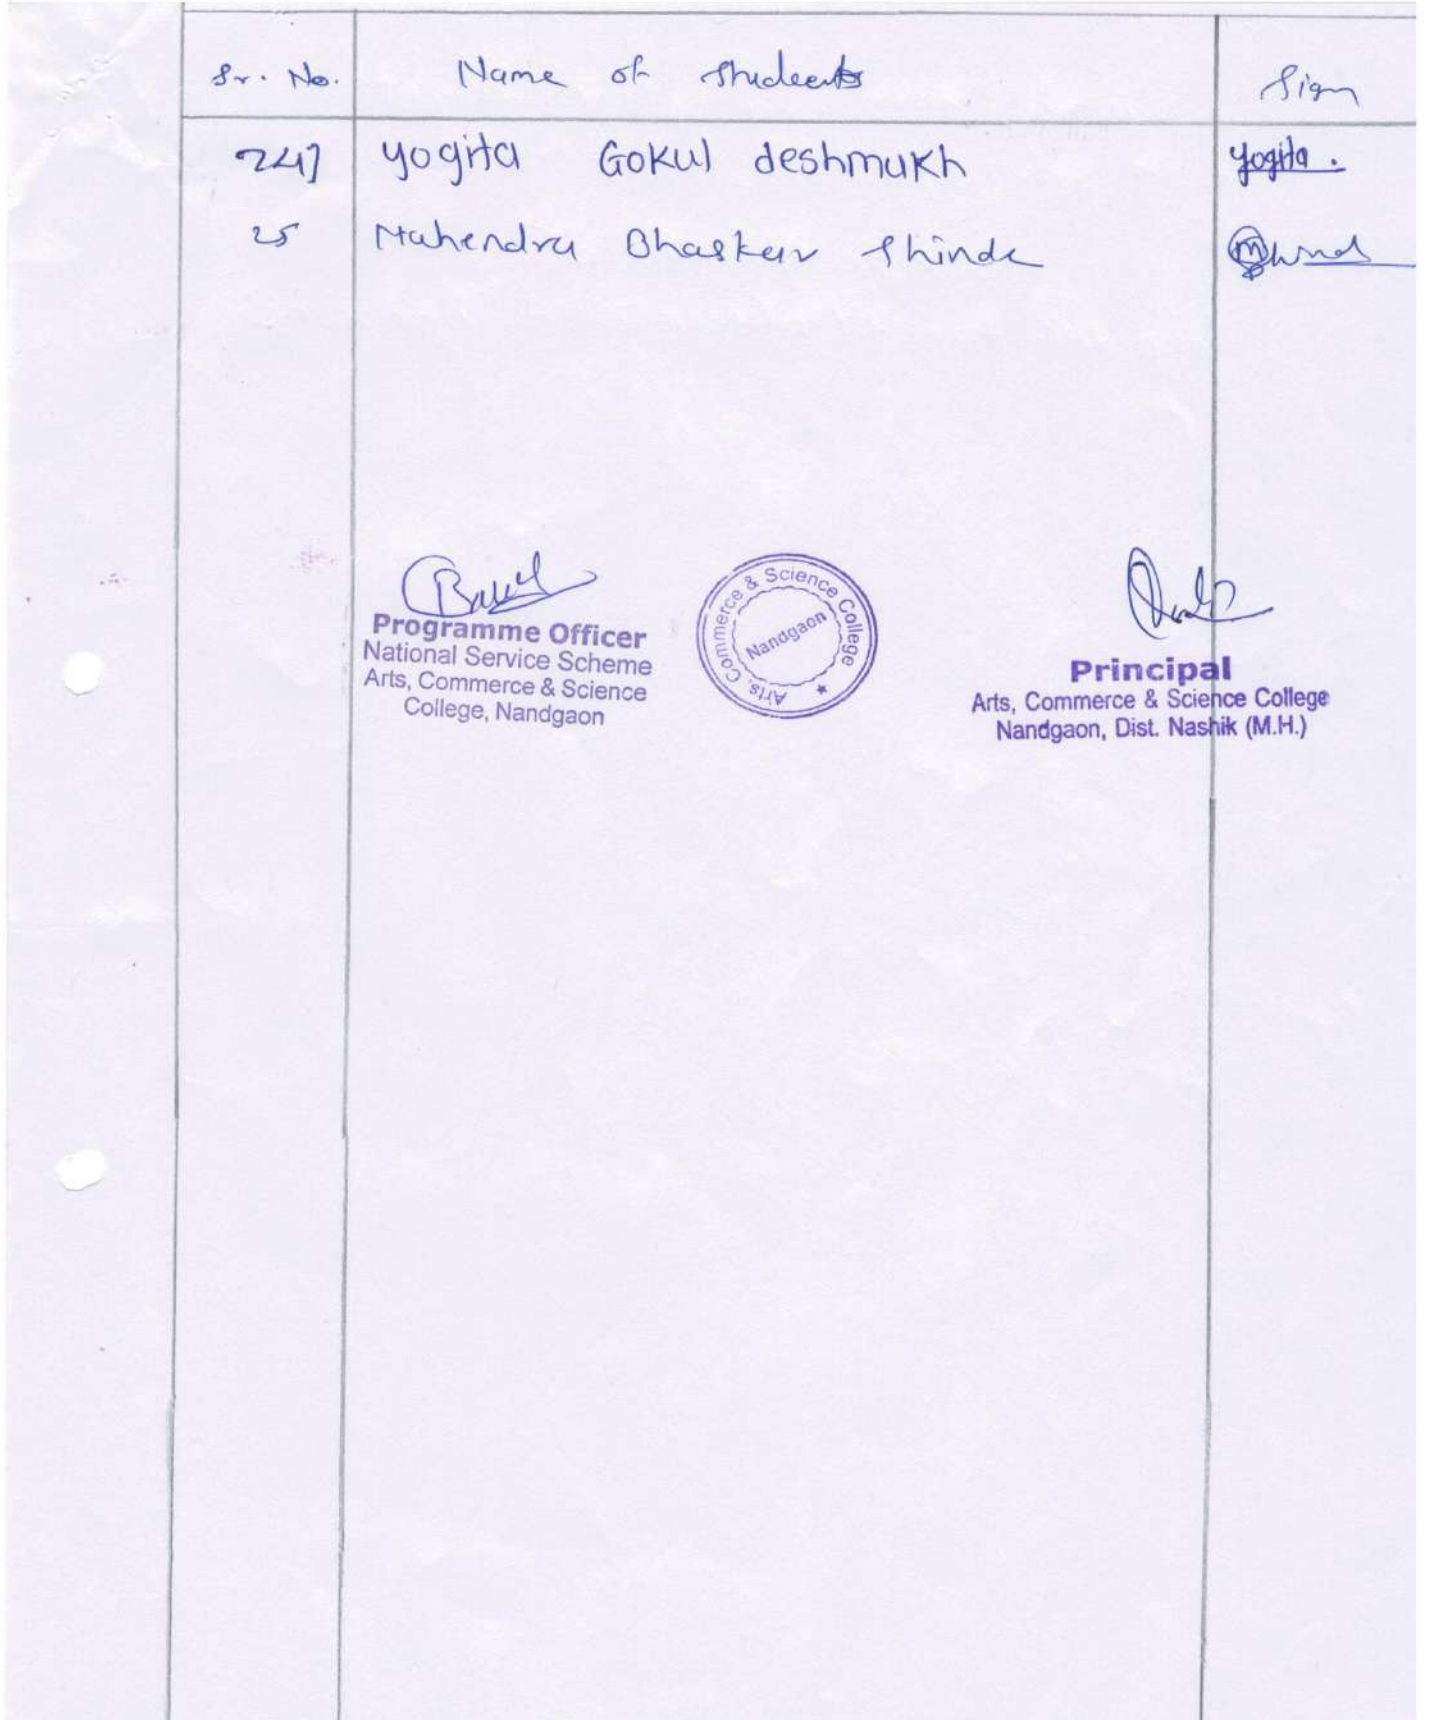 Sr. No. Name of Students Sign
24) Yogita Gokul deshmukh Yogita.
25 Mahendra Bhaskar Shinde
Programme Officer
National Service Scheme
Arts, Commerce & Science
College, Nandgaon
Arts, Commerce & Science College
Nandgaon
Principal
Arts, Commerce & Science College
Nandgaon, Dist. Nashik (M.H.)